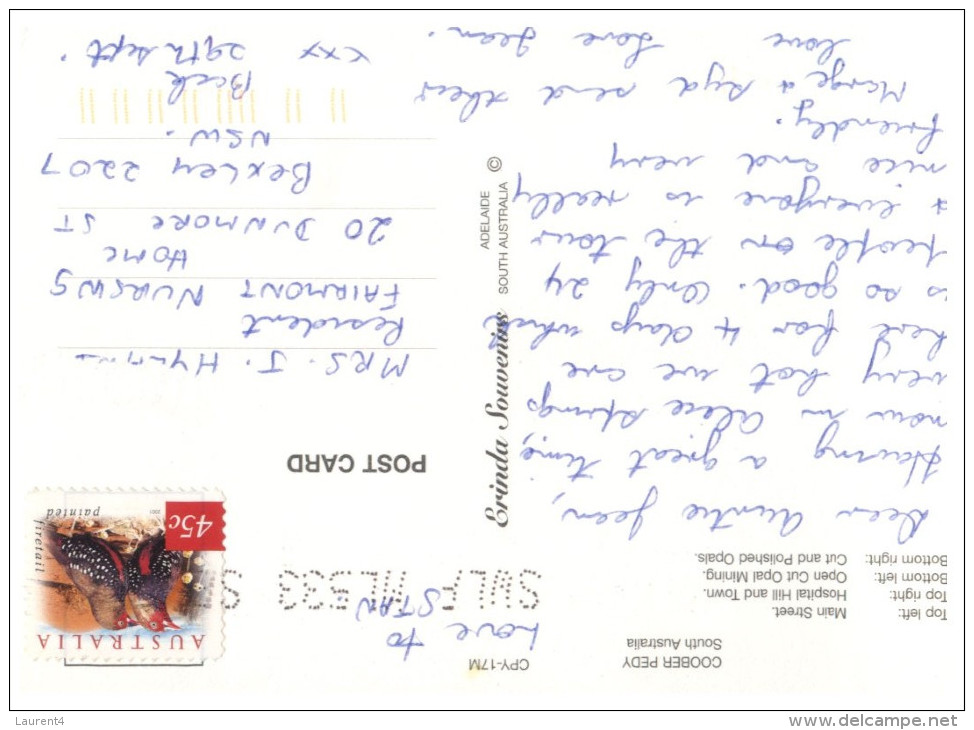 COOBER PEDY
South Australia
CPY-17M
Top left: Main Street.
Top right: Hospital Hill and Town.
Bottom left: Open Cut Opal Mining.
Bottom right: Cut and Polished Opals.
Dear Auntie Jean,
Having a great time,
now in Alice Springs
very hot we are
here for 4 days which
is so good. Only 24
people on the tour
& everyone is really
nice and very
friendly.
Marge & Syd send their
love Love Jean.
xxx
Erinda Souvenirs
ADELAIDE
SOUTH AUSTRALIA ©
Love to
STAN
AUSTRALIA
45c
painted
firetail
2001
POST CARD
MRS. J.
Resident
FAIRMONT NURSING
HOME
20 DUNMORE ST
BEXLEY 2207
NSW.
Back
29th Sept.
Laurent4
www.delcampe.net